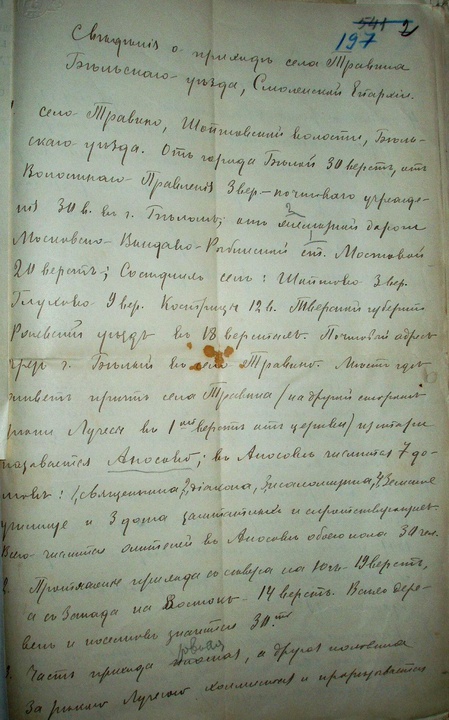 541 2
197
Свѣдѣнія о приходѣ села Травина
Бѣльскаго уѣзда, Смоленской Епархіи.
село Травино, Шоптовской волости, Бѣль-
скаго уѣзда. Отъ города Бѣлый 30 верстъ, отъ
Волостнаго Правленія 3 вер. почтоваго учрежде-
нія 30 в. въ г. Бѣломъ; отъ желѣзной дороги
Московско-Виндаво-Рыбинской ст. Мостовой
20 верстъ; Сосѣднихъ селъ: Шоптово 3 вер.
Глухово 9 вер. Кострицы 12 в. Тверской губерніи
Ржевскій уѣздъ въ 18 верстахъ. Почтовый адресъ
чрез г. Бѣлый въ село Травино. Мѣсто гдѣ
живетъ причтъ села Травина (на другой сторонѣ
рѣки Лучесы въ 1ой верстѣ отъ церкви) изстари
называется Апосово; въ Апосовѣ числится 7 до-
мовъ: 1, священника 2, діакона, 3, псаломщика, 4, Земское
училище и 3 дома заштатныхъ и
Всего числится жителей въ Апосовѣ обоего пола 30 чел.
2. Протяженіе прихода съ сѣвера на Югъ 19 верстъ,
а съ Запада на Востокъ 14 верстъ. Всѣхъ дере-
вень и поселковъ значится 30.ть
ровная
3. Часть прихода а другая половина
за рѣкою Лучесою холмистая и прорѣзывается